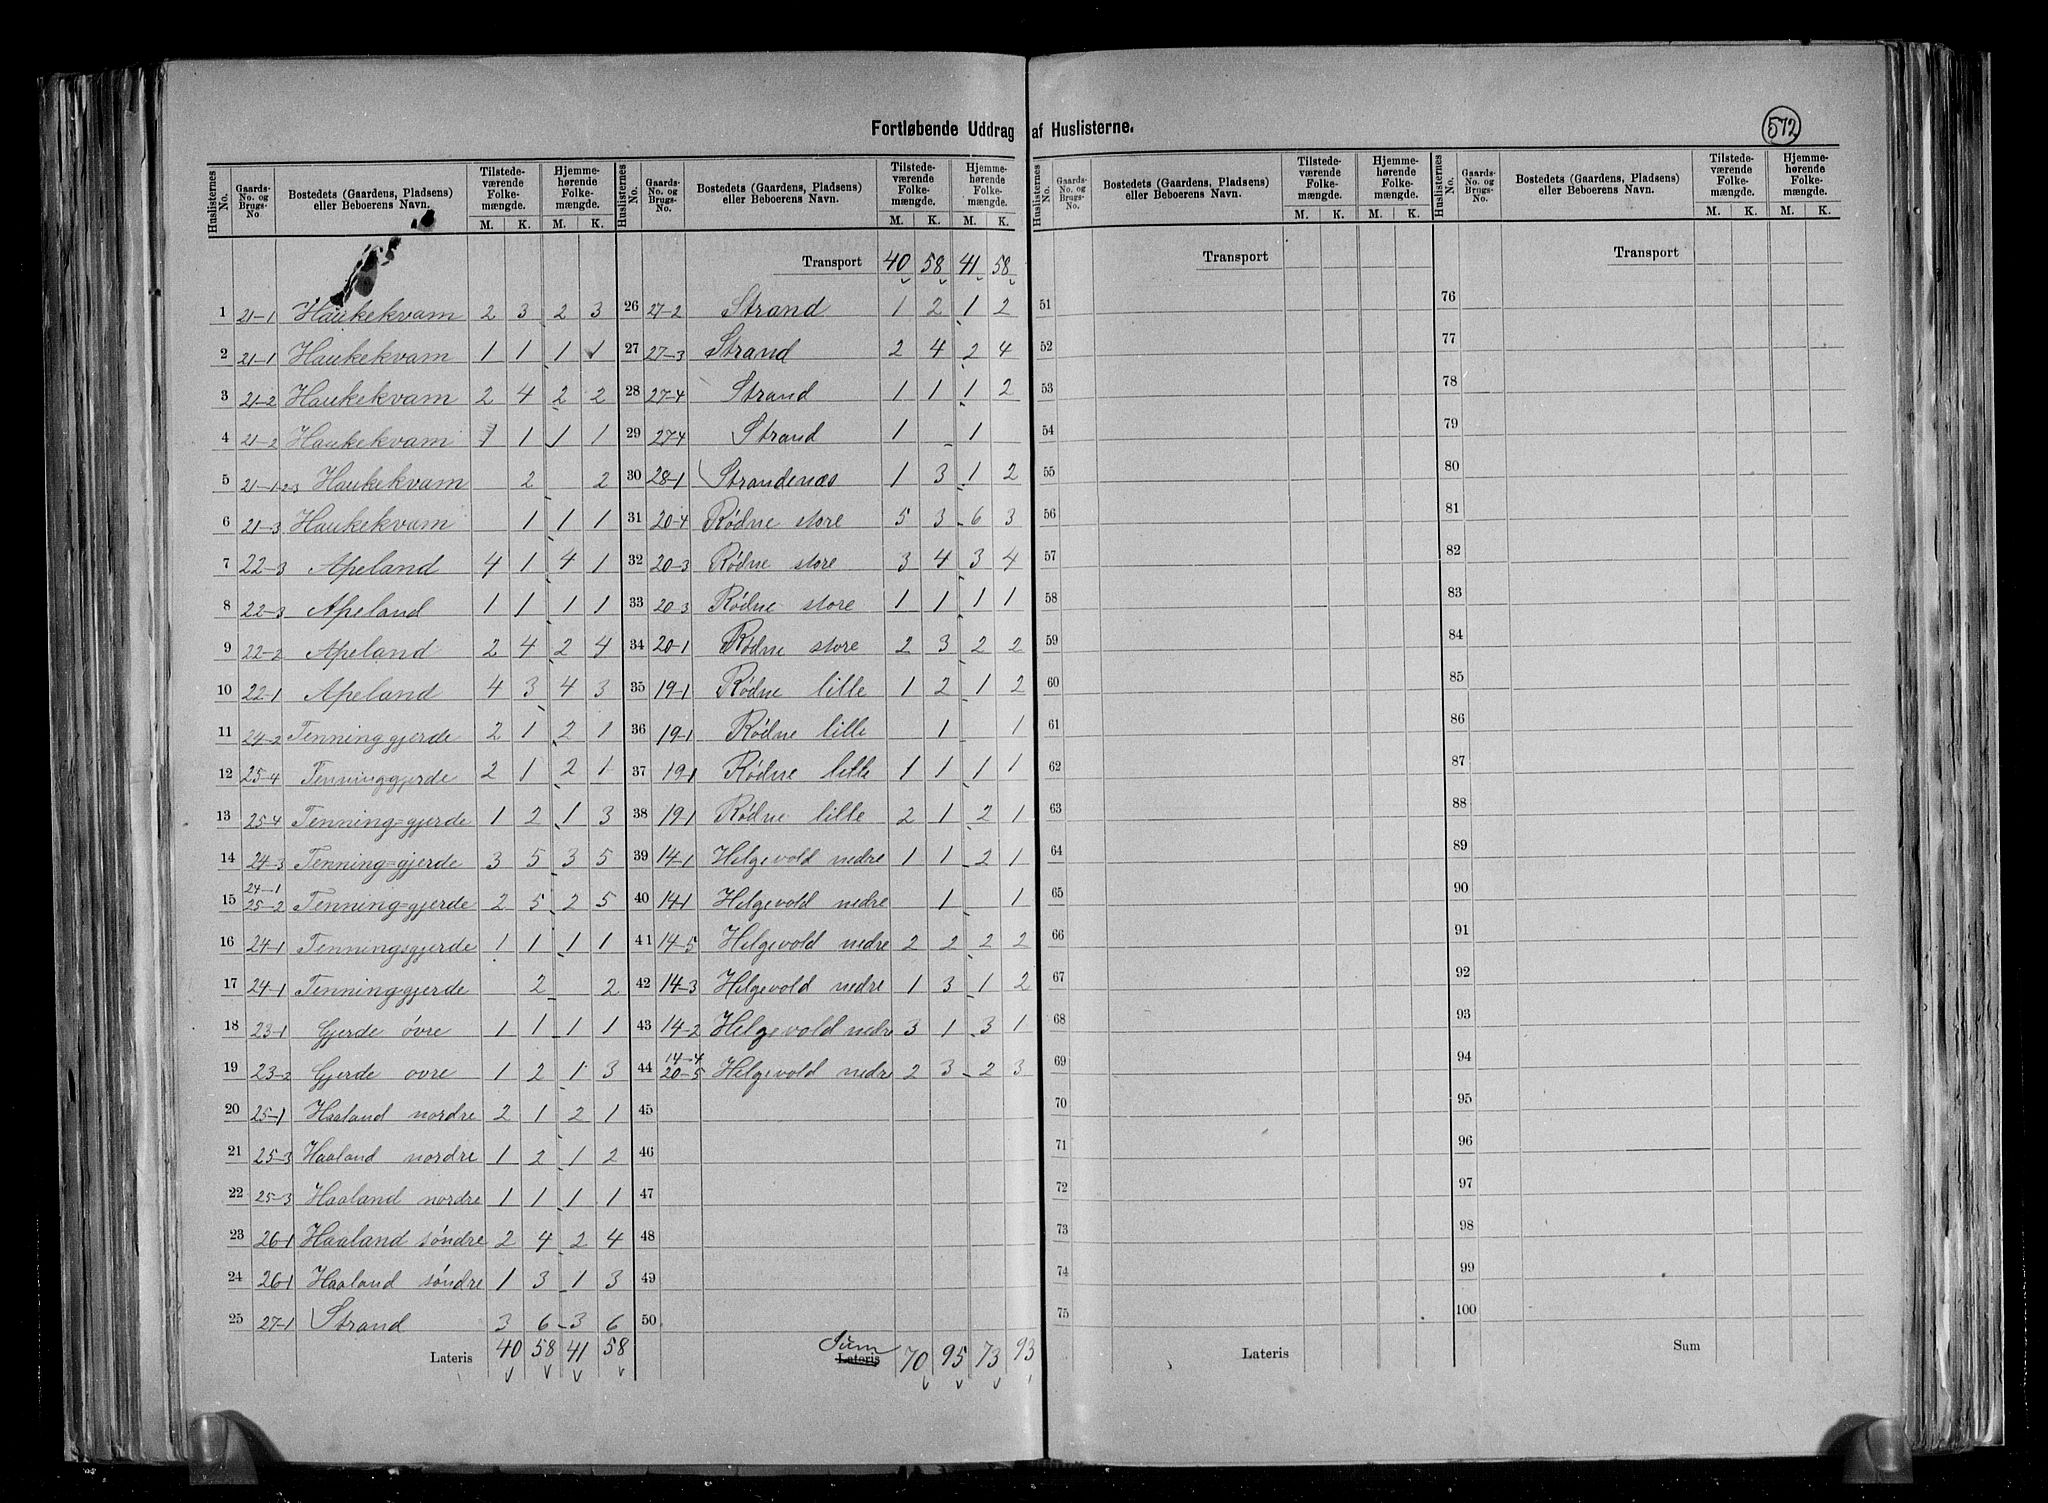 Fortløbende Uddrag af Huslisterne.
572
Huslisternes No. | Gaards-No. og Brugs-No. | Bostedets (Gaardens, Pladsens) eller Beboerens Navn. | Tilstedeværende Folkemængde. M. K. | Hjemmehørende Folkemængde. M. K.
1 21-1 Haukekvam 2 3 2 3
2 21-1 Haukekvam 1 1 1 1
3 21-2 Haukekvam 2 4 2 2
4 21-2 Haukekvam 1 1 1 1
5 21-1-2-3 Haukekvam 2 2
6 21-3 Haukekvam 1 1 1
7 22-3 Apeland 4 1 4 1
8 22-3 Apeland 1 1 1 1
9 22-2 Apeland 2 4 2 4
10 22-1 Apeland 4 3 4 3
11 24-2 Tenninggjerde 2 1 2 1
12 25-4 Tenninggjerde 2 1 2 1
13 25-4 Tenning=gjerde 1 2 1 3
14 24-3 Tenning=gjerde 3 5 3 5
24-1
15 25-2 Tenning=gjerde 2 5 2 5
16 24-1 Tenningsgjerde 1 1 1 1
17 24-1 Tenninggjerde 2 2
18 23-1 Gjerde óvre 1 1 1 1
19 23-2 Gjerde ovre 1 2 1 3
20 25-1 Haaland nordre 2 1 2 1
21 25-3 Haaland nordre 1 2 1 2
22 25-3 Haaland nordre 1 1 1 1
23 26-1 Haaland sóndre 2 4 2 4
24 26-1 Haaland sóndre 1 3 1 3
25 27-1 Strand 3 6 3 6
Lateris 40 58 41 58
Huslisternes No. | Gaards-No. og Brugs-No. | Bostedets (Gaardens, Pladsens) eller Beboerens Navn. | Tilstedeværende Folkemængde. M. K. | Hjemmehørende Folkemængde. M. K.
Transport 40 58 41 58
26 27-2 Strand 1 2 1 2
27 27-3 Strand 2 4 2 4
28 27-4 Strand 1 1 1 2
29 27-4 Strand 1 1
30 28-1 Strandenæs 1 3 1 2
31 20-4 Rødne store 5 3 6 3
32 20-3 Rødne store 3 4 3 4
33 20-3 Rødne store 1 1 1 1
34 20-1 Rødne store 2 3 2 2
35 19-1 Rødne lille 1 2 1 2
36 19-1 Rødne lille 1 1
37 19-1 Rødne lille 1 1 1 1
38 19-1 Rødne lille 2 1 2 1
39 14-1 Helgevold nedre 1 1 2 1
40 14-1 Helgevold nedre 1 1
41 14-5 Helgevold nedre 2 2 2 2
42 14-3 Helgevold nedre 1 3 1 2
43 14-2 Helgevold nedre 3 1 3 1
14-4
44 20-5 Helgevold nedre 2 3 2 3
45
46
47
48
49
50
Sum
Lateris 70 95 73 93
Huslisternes No. | Gaards-No. og Brugs-No. | Bostedets (Gaardens, Pladsens) eller Beboerens Navn. | Tilstedeværende Folkemængde. M. K. | Hjemmehørende Folkemængde. M. K.
Transport
51
52
53
54
55
56
57
58
59
60
61
62
63
64
65
66
67
68
69
70
71
72
73
74
75
Lateris
Huslisternes No. | Gaards-No. og Brugs-No. | Bostedets (Gaardens, Pladsens) eller Beboerens Navn. | Tilstedeværende Folkemængde. M. K. | Hjemmehørende Folkemængde. M. K.
Transport
76
77
78
79
80
81
82
83
84
85
86
87
88
89
90
91
92
93
94
95
96
97
98
99
100
Sum